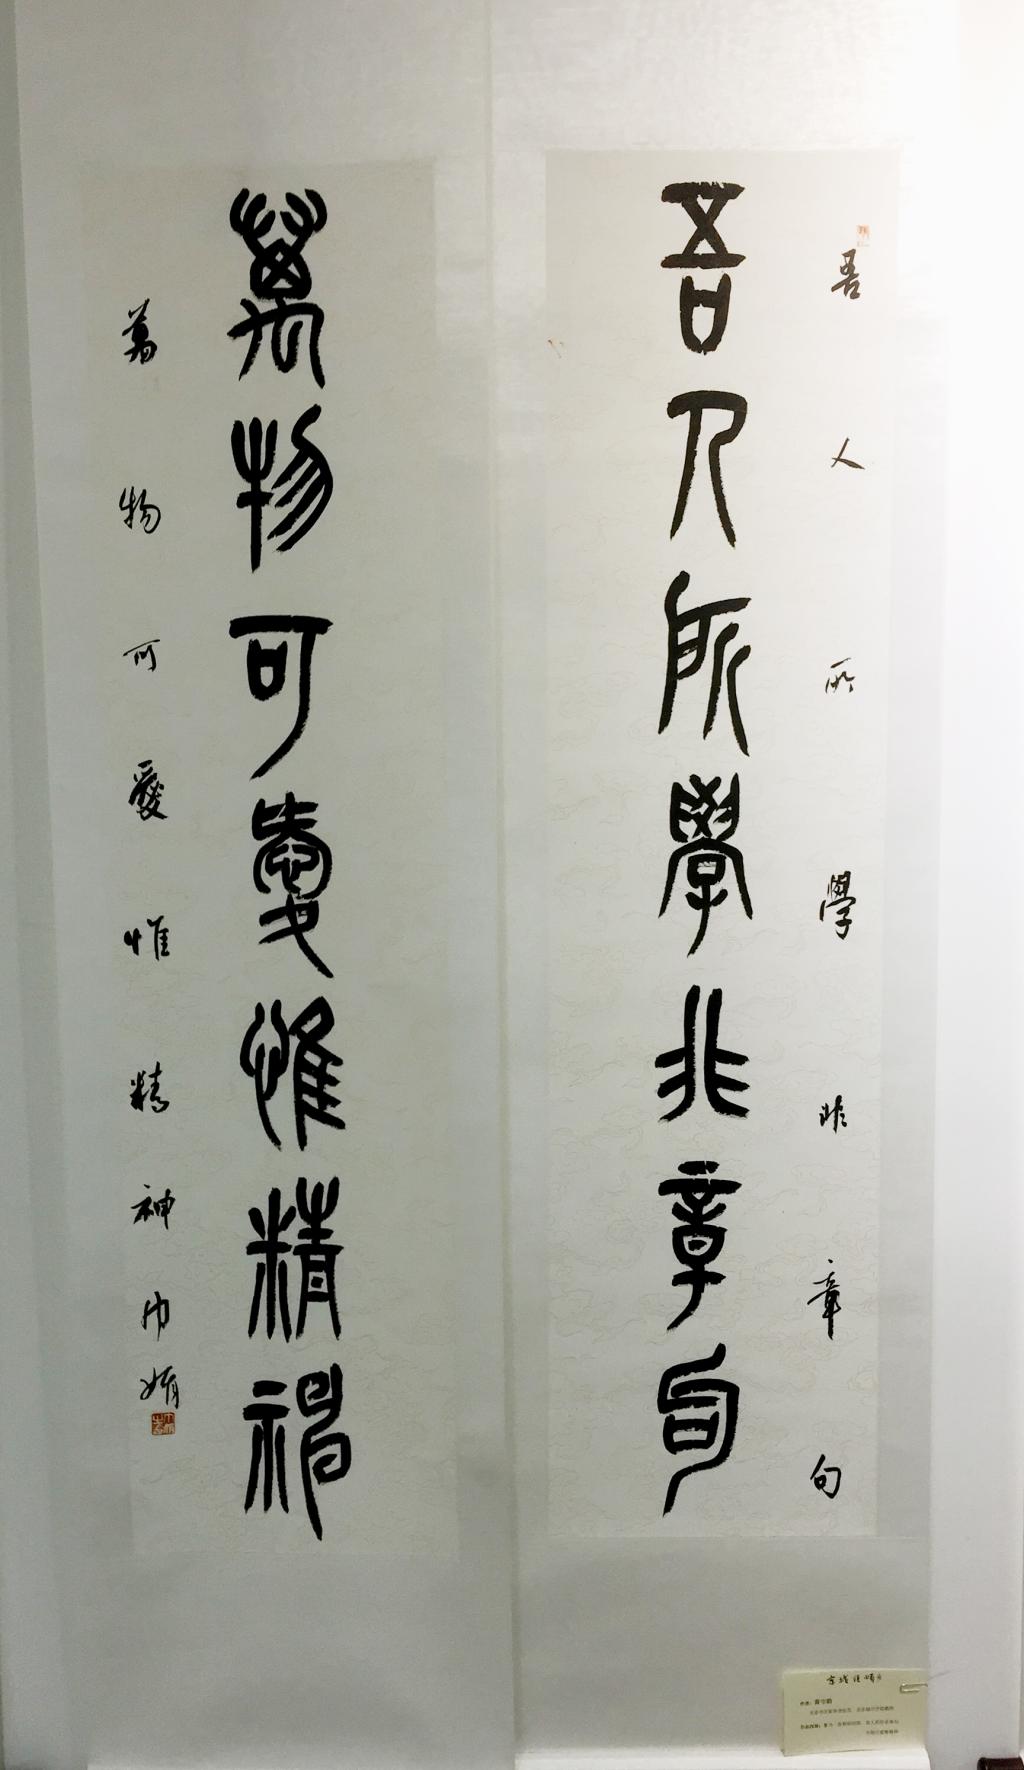 吾人所學非章句
吾人所學非章句
萬物可愛惟精神
萬物可愛惟精神